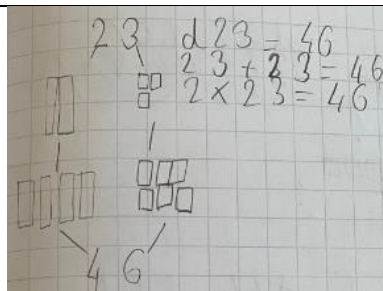 23 d23 = 46
23 + 23 = 46
2 x 23 = 46
46